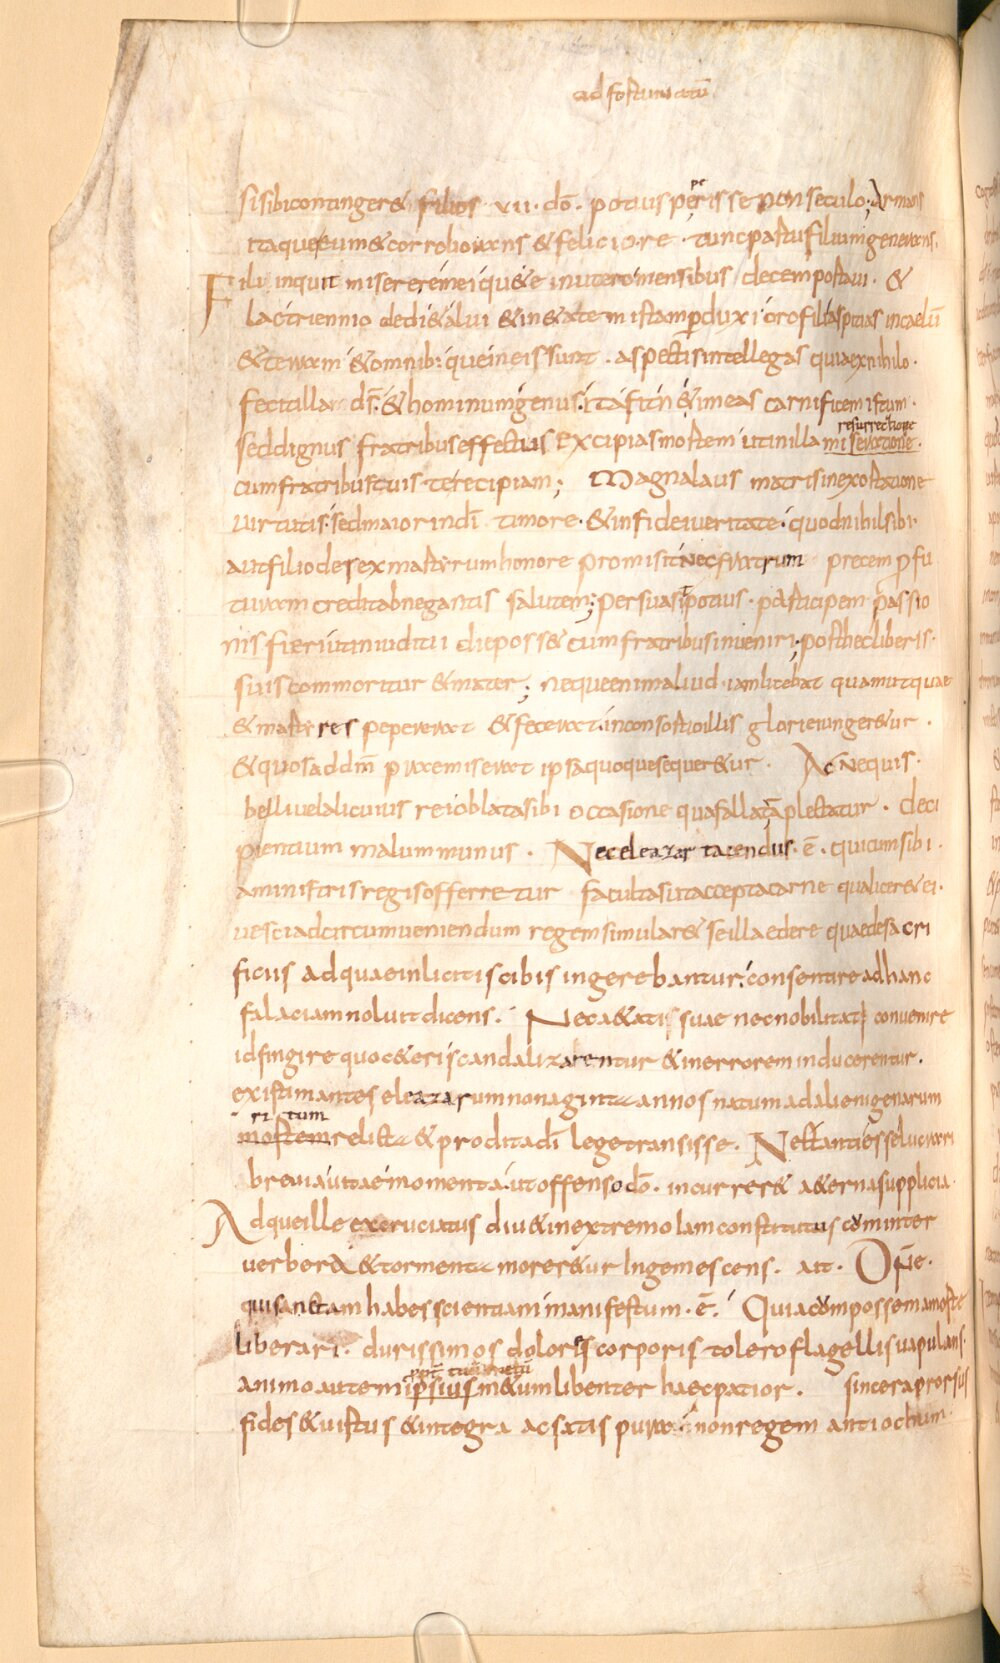 ad fortunatū
si sibi contingeret filios vii. dō. potius perisse non seculo; Armans
itaque eum et corroborans et feliciore. tunc partu filium generans.
Fili inquit miserere mei quae in utero mensibus decem portavi. et
lac triennio dedi et alui et in etatem istam perduxi oro fili aspitias in caelū
et terram et omnib: que in eis sunt. aspectis intellegas quia ex nihilo.
fecit illa ds̄. et hominum genus. ita fit
sed dignus fratribus effectus excipias mortem ut in illa miseratione.
resurrectione
cum fratribus tuis te recipiam; Magna laus matris in exortatione
virtutis. sed maior in dī timore. et in fidei veritate. quod nihil sibi.
aut filio de sex martyrum honore promisit nec fratrum precem profu
turam credit abnegantis salutem; persuasit potius. participem passio
nis fieri ut in iuditii die possit cum fratribus inveniri; post hec liberis.
suis commoritur et mater; neque enim aliud iam licebat quam ut quae
et martyres pepererat et fecerat. in consortio illis glorie iungeretur.
et quos ad dm̄ praemiserat ipsa quoque sequeretur. Ac nequis.
belli vel alicuius rei oblata sibi occasione qua fallat amplectatur. deci
pientium malum munus. Nec eleazar tacendus. ē. qui cum sibi.
a ministris regis offerretur facultas ut accepta carne qua liceret ei.
vesci ad circumveniendum regem simularet se illa edere quae de sacri
ficiis ad quae inlicitis cibis ingerebantur: consentire ad hanc
falaciam noluit dicens. Nec aetati suae nec nobilitati convenire
id fingire quo ceteri scandalizarentur et in errorem inducerentur.
existimantes eleazarum nonaginta annos natum ad alienigenarum
ri tum
mortem relicta et prodita dī lege transisse. Nec tanti esse lucrari
brevia vitae momenta. ut offenso dō. incurreret aeterna supplicia.
Adque ille excruciatus diu et in extremo iam constitutus cum inter
verbera et tormenta moreretur Ingemescens. ait. One.
qui sanctam habes scientiam manifestum. ē. Quia cum possem a morte
liberari. durissimos dolores corporis tolero flagellis vapulans.
animo autem ipsius metum libenter haec patior. sincera prorsus
fides et virtus et integra ac satis pura. non regem antiochum.